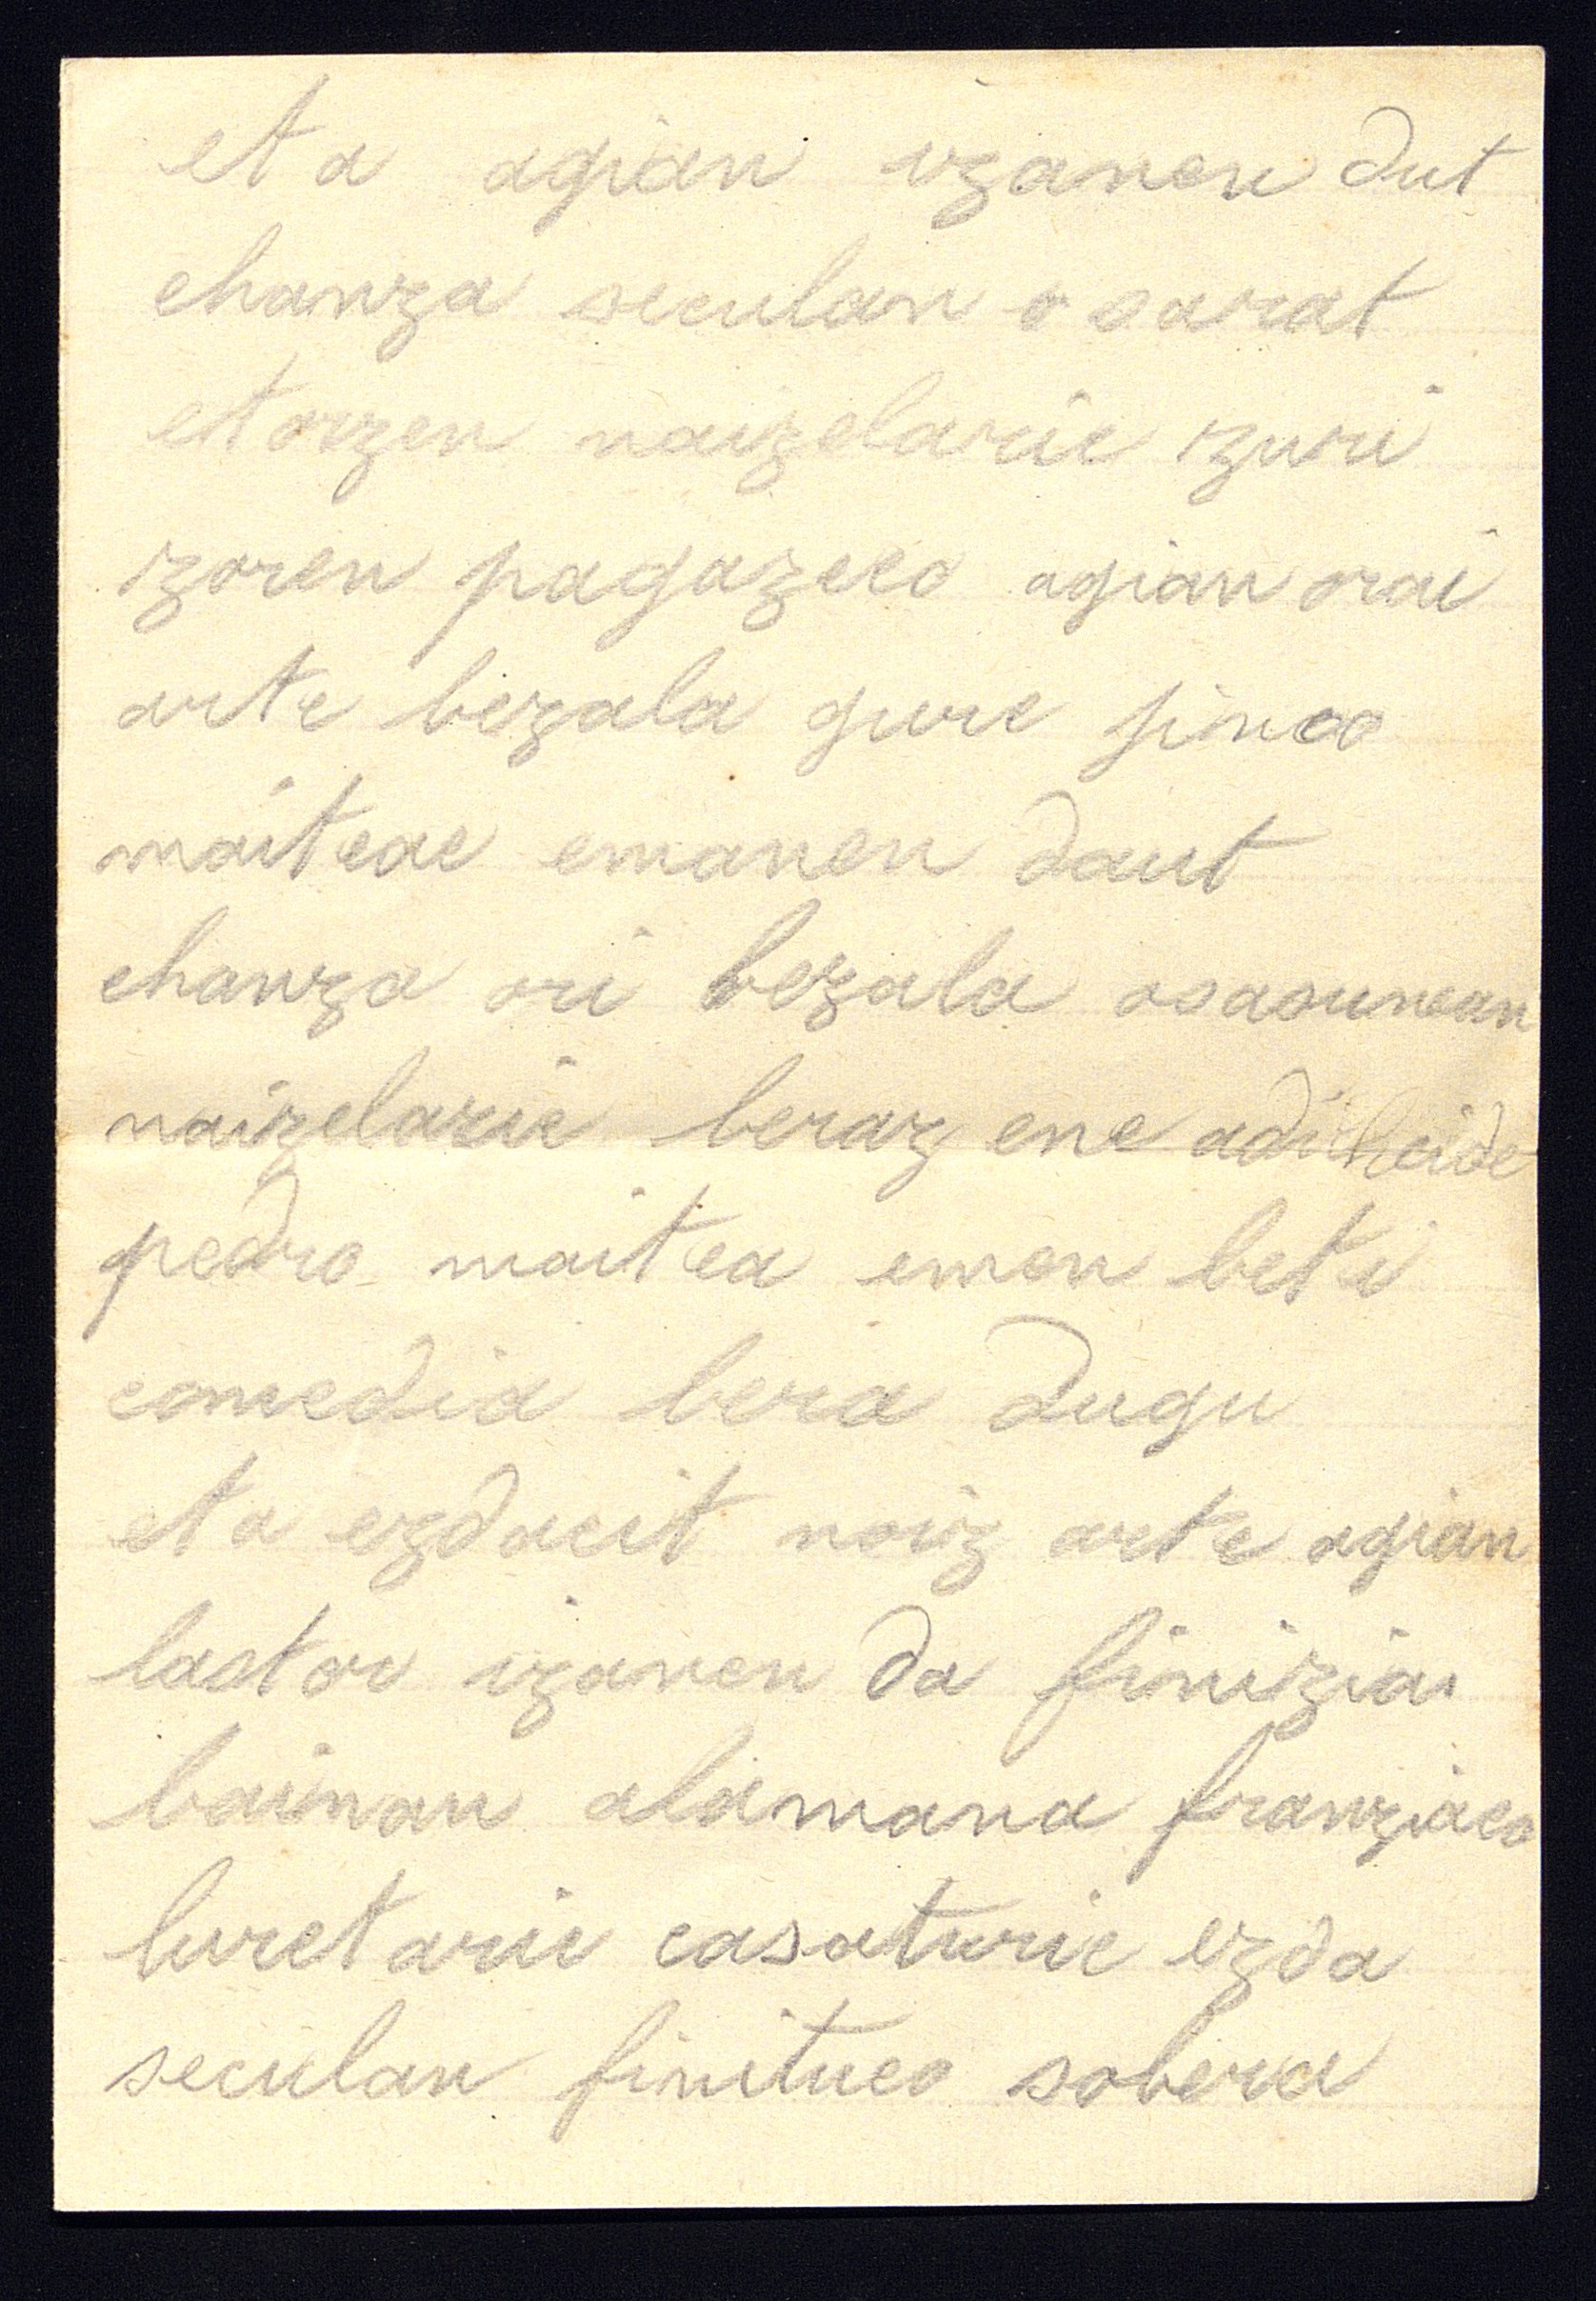 eta agian izanen dut
chanza seculan o sarat
etorzen naizelaric izuri
izoren pagazeco agian orai
arte bezala gure jinco
maiteac emanen daut
chanza ori bezala osasunean
naizelaric beraz ene adicheide
pedro maitea emen beti
comedia bera dugu
eta ezdacit noiz arte agian
laster izanen da finizia
bainan alamana franziaco
luretaric casaturic ezda
seculan finituco sobera